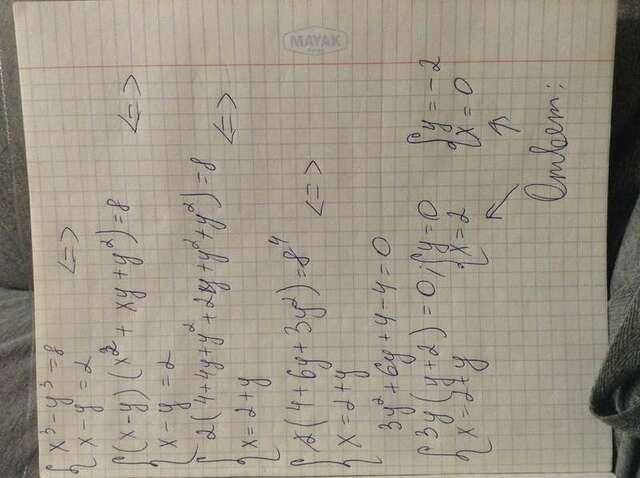 MAYAK
{x³ - y³ = 8
x - y = 2 <=>
{(x-y)(x² + xy + y²) = 8
x - y = 2 <=>
{2(4+4y+y²+2y+y²+y²) = 8
x = 2+y <=>
{2(4+6y+3y²) = 8 4
x = 2+y <=>
3y²+6y+4-4=0
{3y(y+2) = 0
x = 2+y ; {y=0
x=2 {y=-2
x=0
Ответ: